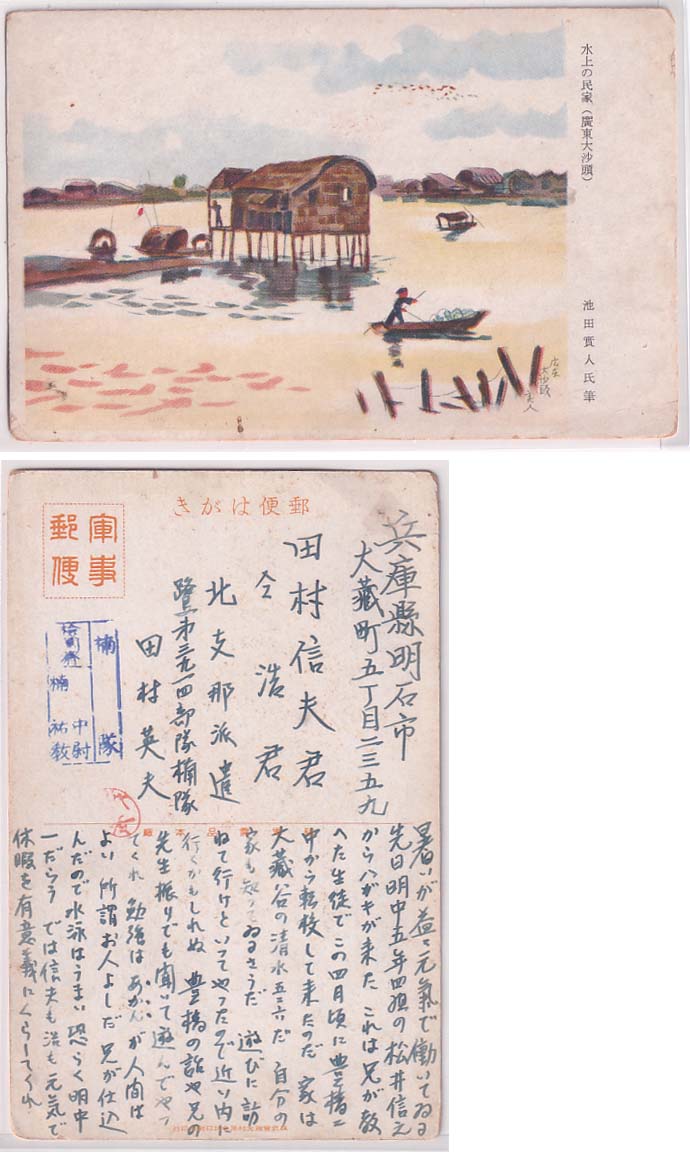 水上の民家（廣東大沙頭）
池田實人氏筆
郵便はがき
軍事
郵便
兵庫縣明石市
大藏町五丁目二三五九
田村信夫君
仝 浩 君
北支那派遣
鷺第三九一四部隊楠隊
田村英夫
楠 隊
中尉
楠 祐
暑いが益々元氣で働いてゐる
先日明中五年四組の松井信之
からハガキが来た これは兄が教
へた生徒で この四月頃に豊橋二
中から転校して来たのだ 家は
大藏谷の清水五三六だ 自分の
家も知つてゐるさうだ 遊びに訪
ねて行けといつてやつたので近い内に
行くかもしれぬ 豊橋の話や兄の
先生振りでも聞いて遊んでやつ
てくれ 勉強はあかんが人間は
よい 所謂お人よしだ 兄が仕込
んだので水泳はうまい 恐らく明中
一だらう では信夫も浩も元氣で
休暇を有意義にくらしてくれ